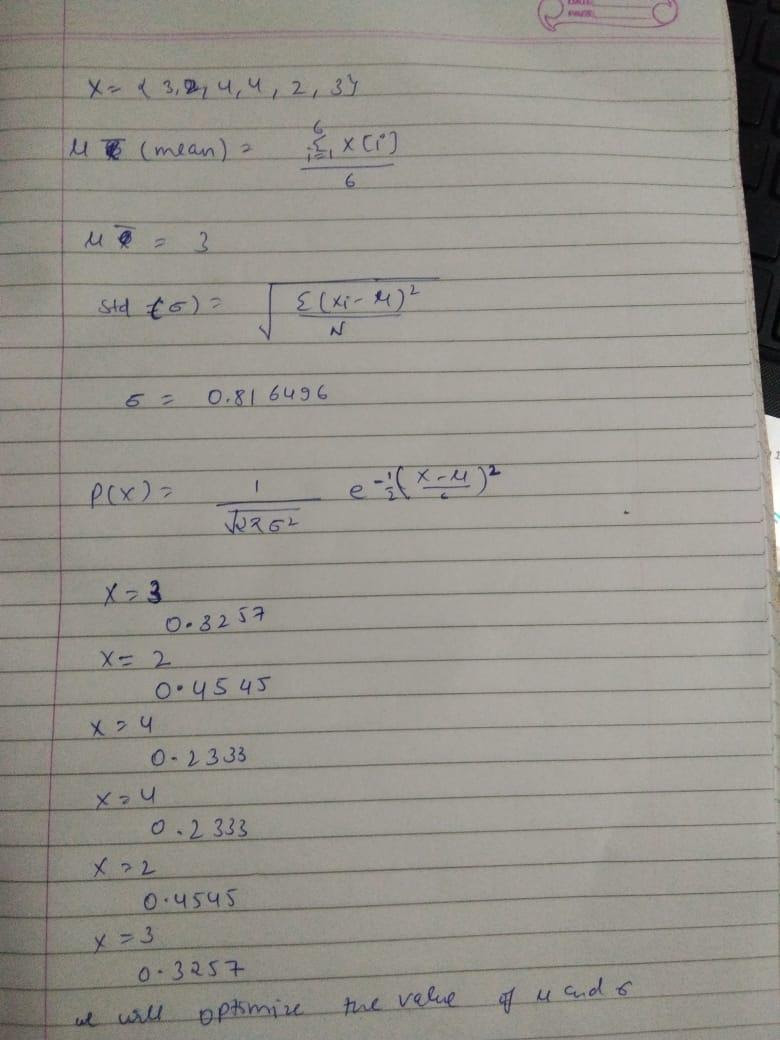 X = { 3, 2, 4, 4, 2, 3}
μ x̄ (mean) = 6 Σ i=1 X[i] / 6
μ x̄ = 3
std (σ) = √ Σ(xi - μ)² / N
σ = 0.816496
P(X) = 1 / √2πσ² e -1/2 (X - μ / σ)²
X = 3
0.3257
X = 2
0.4545
X = 4
0.2333
X = 4
0.2333
X = 2
0.4545
X = 3
0.3257
we will optimize the value of μ and σ